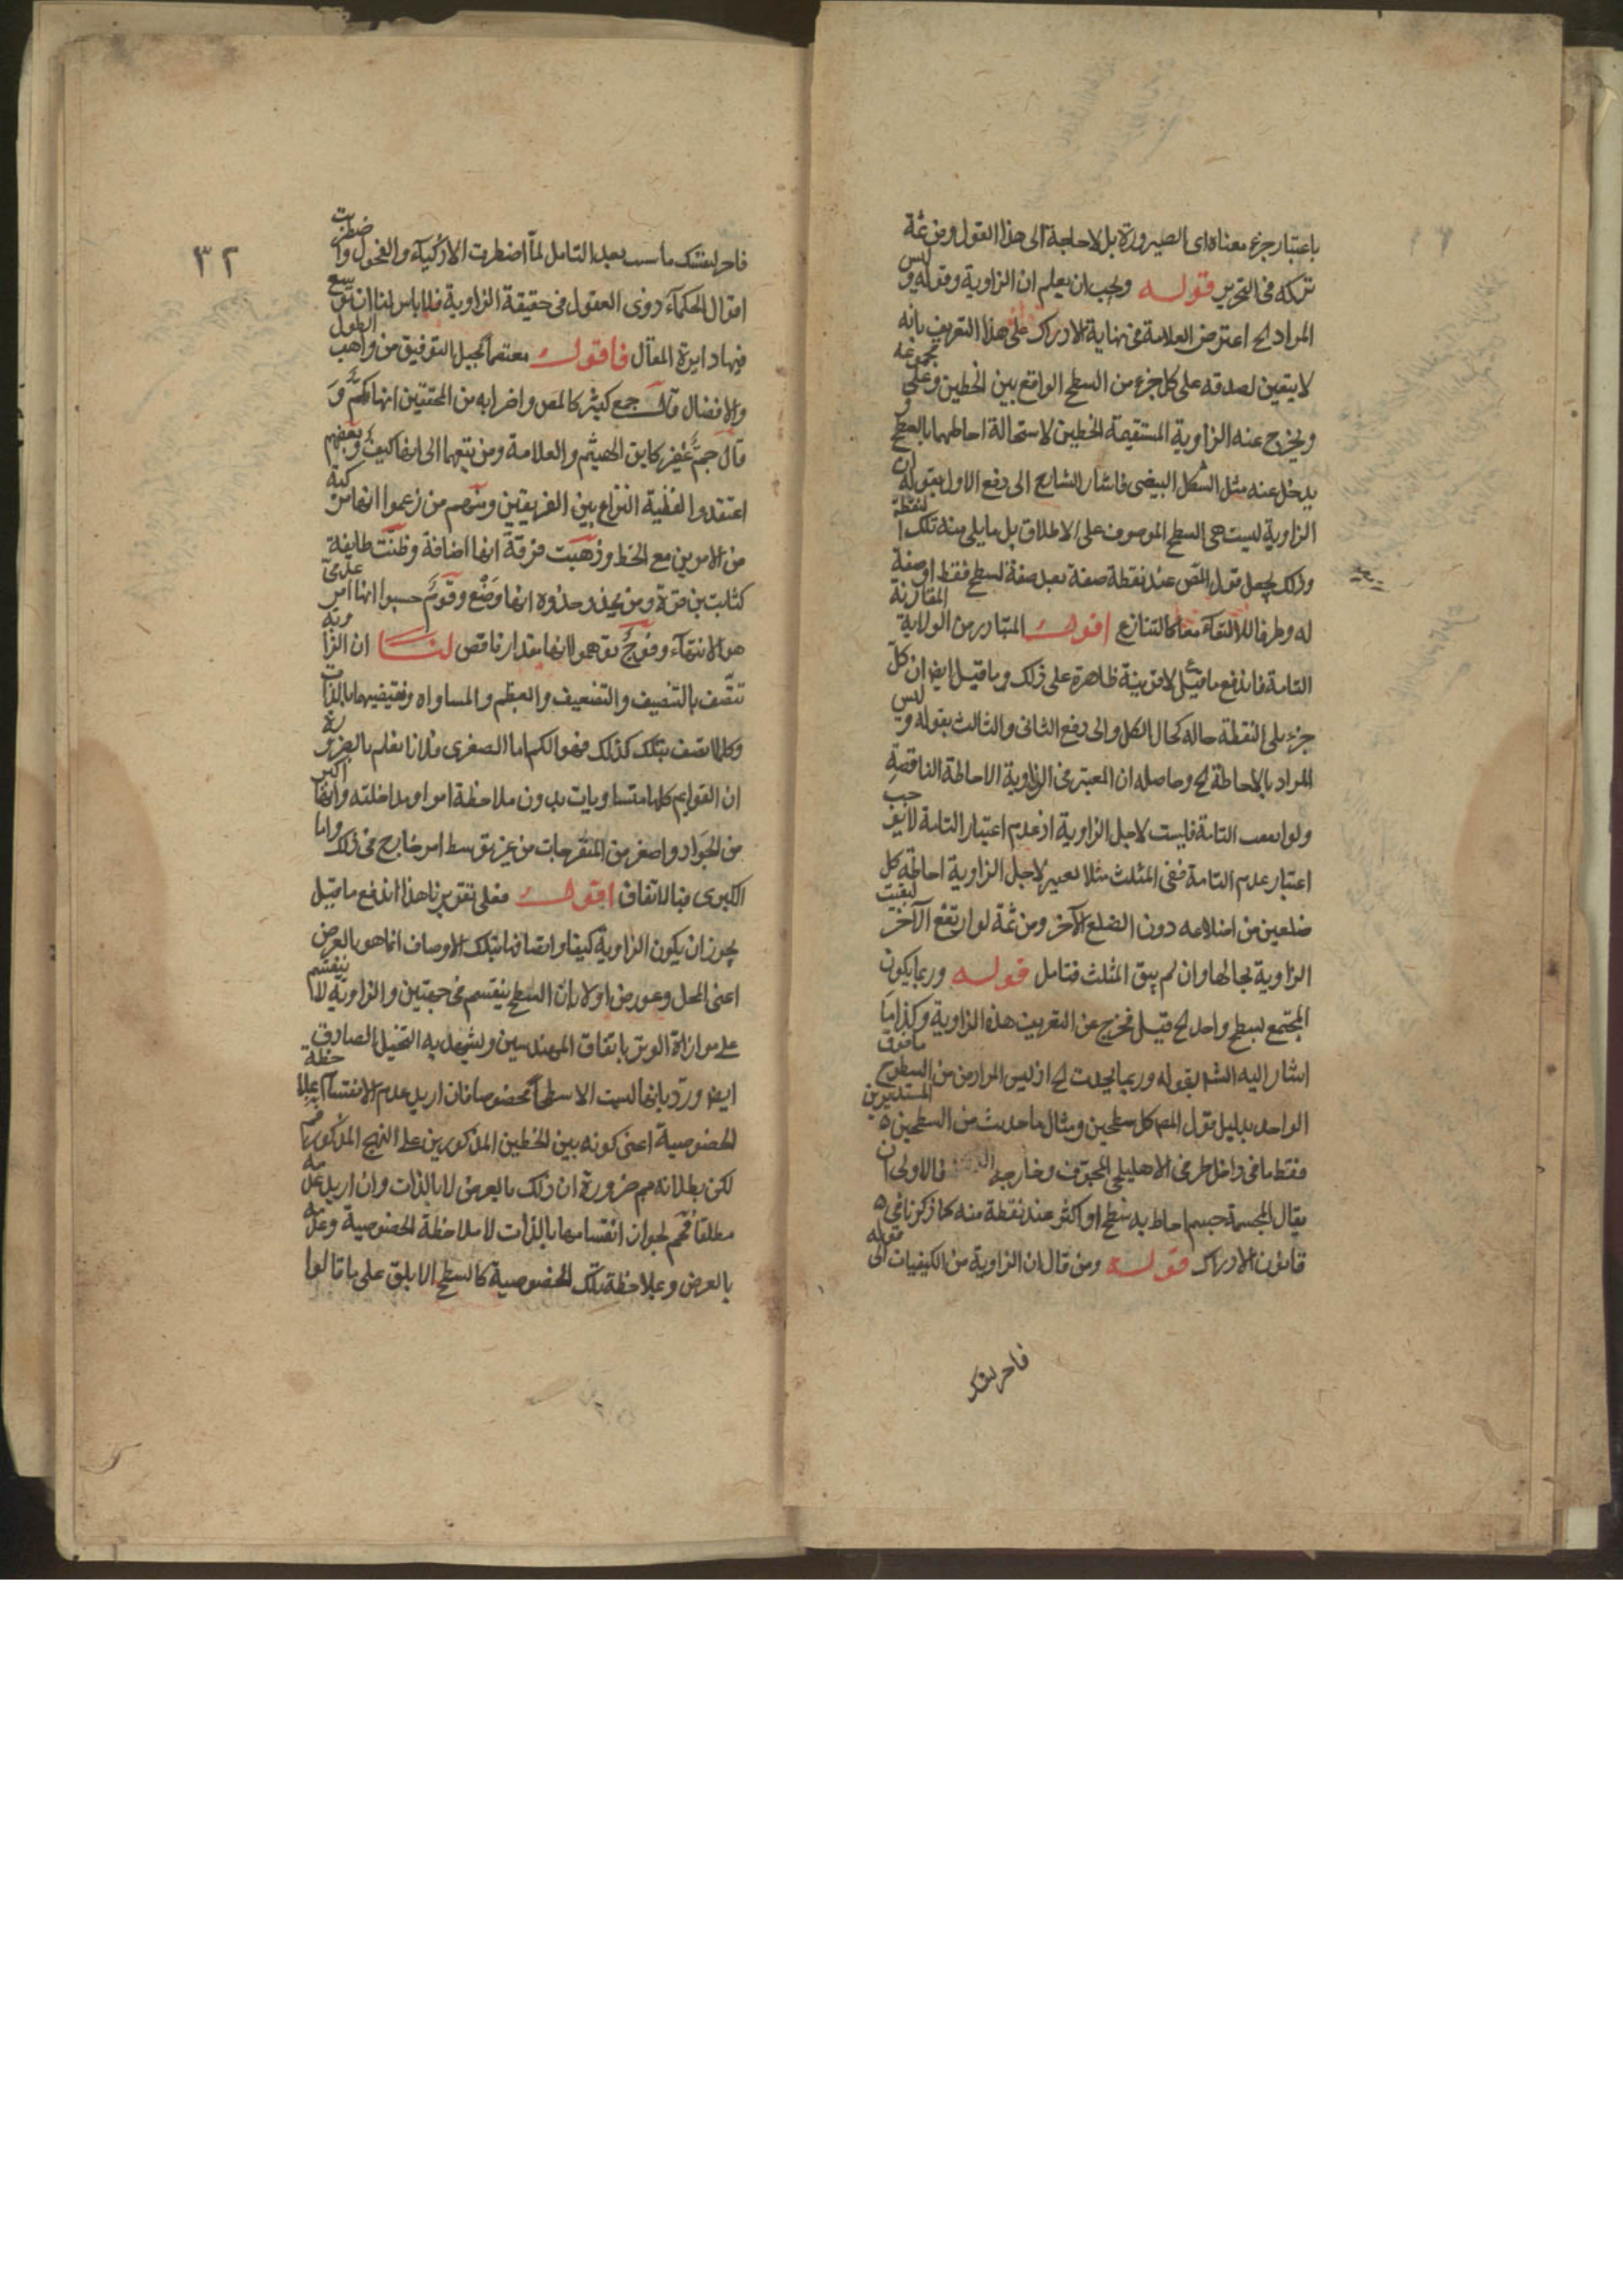 باعتبار جزء معناه اى الصيرورة بل لا حاجة الى هذا القول ومن ثمة
تركه فى التحرير قوله ويجب ان يعلم ان الزاوية وقوله وليس
المراد الخ اعترض العلامة فى نهاية الادراك على هذا التعريف بانه
لا يتعين لصدقه على كل جزء من السطح الواقع بين الخطين وعلى مجموعه
ويخرج عنه الزاوية المستقيمة الخطين لاستحالة احاطهما بالسطح و
يدخل عنه مثل الشكل البيضى فاشار الشارح الى دفع الاول بقوله ان
الزاوية ليست هى السطح الموصوف على الاطلاق بل ما يلى منه تلك النقطة
وذلك يجعل قول المص عند نقطة صفة بعد صفة لسطح فقط او صفة
له وظرفا للالتقاء معا كالتنازع اقول المتبادر من الولاية المقارنة
التامة فاندفع ما قيل لا قرينة ظاهرة على ذلك وما قيل ايض ان كل
جزء يلى النقطة حاله كحال الكل والى دفع الثانى والثالث بقوله وليس
المراد بالاحاطة الخ وحاصله ان المعتبر فى الزاوية الاحاطة الناقصة
ولو التامة فليست لاجل الزاوية اذ عدم اعتبار التامة لا يوجب
اعتبار عدم التامة ففى المثلث مثلا لاجل الزاوية احاطة كل
ضلعين من اضلاعه دون الضلع الآخر ومن ثمة لو ارتفع الآخر لبقيت
الزاوية بحالها وان لم يبق المثلث فتامل قوله وربما يكون
المجتمع بسطح واحد الخ قيل فخرج عن التعريف هذه الزاوية وكذا ما
اشار اليه الش بقوله وربما يحدث الخ اذ ليس المراد من السطوح ما فوق
الواحد بدليل قول المص كل سطحين ومثال ما حدث من السطحين المستديرين
فقط ما فى داخل طرفى الاهليلجى المجوف وخارجه فالاولى ان
يقال المجسمة جسم احاط به سطح او اكثر عند نقطة منه كما ذكرنا فى
قانون الادراك قوله ومن قال ان الزاوية من الكيفيات الى قوله
٣٢
بعد التامل لما اضطربت الاذكياء والفحول واضطربت
اقوال الحكماء ذوى العقول فى حقيقة الزاوية فلا باس لنا ان نوسع
فيها دايرة المقال فاقول معتصما بحبل التوفيق من واهب الطول
والافضال قال جمع كثير كالمص واضرابه من المحققين انها كم و
قال جم غفير كابن الهيثم والعلامة ومن تبعهما الى انها كيف وبعضهم
اعتقدوا لفظية النزاع بين الفريقين ومنهم من زعموا انها مركبة
من الامرين مع الخط وذهبت فرقة انها اضافة وظنت طايفة
كثابت بن قرة ومن يحذو حذوه انها وضع وقوم حسبوا انها امر عدمى
هو الانتهاء وفوج توهموا انها مقدار ناقص لنا ان الزاوية
تتصف بالتنصيف والتضعيف والعظم والمساواه ونقيضيهما بالذات
وكلما تصف بتلك كذلك فهو الكم اما الصغرى فلانا نعلم بالضرورة
ان القوايم كلها متساويات بدون ملاحظة امر او مداخلته وانها اكبر
من الحواد واصغر من المنفرجات من غير توسط امر خارج فى ذلك واما
الكبرى فبالاتفاق اقول فعلى تقريرنا هذا اندفع ما قيل
يجوز ان يكون الزاوية كيفا واتصافها بتلك الاوصاف انما هو بالعرض
اعنى المحل وعورض اولا بان السطح ينقسم فى جهتين والزاوية لا ينقسم
على موازاة الوتر باتفاق المهندسين ويشهد به التخيل الصادق
ايض ورد بانها ليست الا سطحا مخصوصا فان اريد عدم الانقسام بملاحظة
الخصوصية اعنى كونه بين الخطين المذكورين على النهج المذكور فمم
لكن بطلانه مم ضرورة ان ذلك بالعرض لا بالذات وان اريد عدمه
مطلقا فمم لجواز انقسامها بالذات لا ملاحظة الخصوصية وعدمه
بالعرض وبملاحظة تلك الخصوصية كالسطح الابلق على ما قالوا